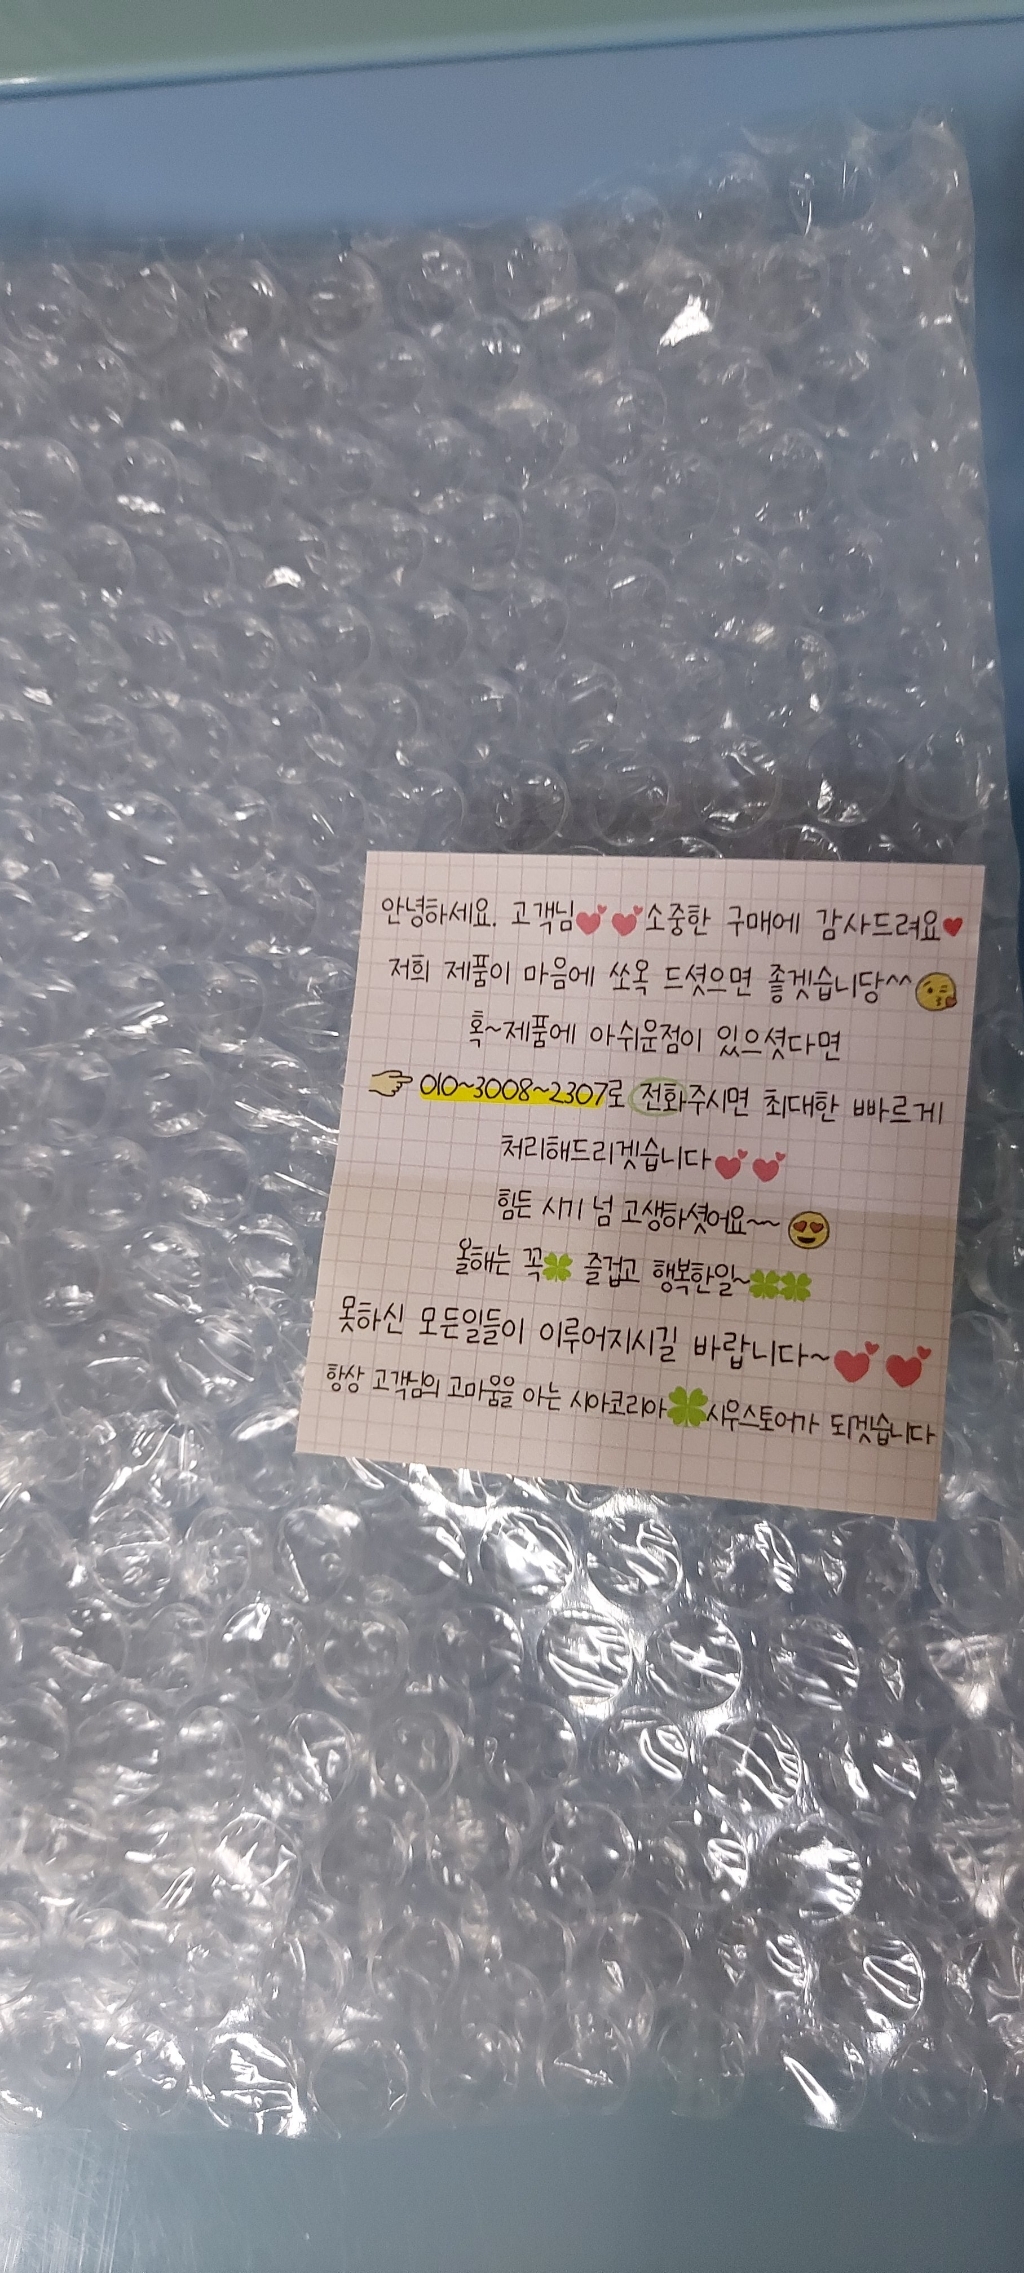 안녕하세요. 고객님💕💕소중한 구매에 감사드려요♥
저희 제품이 마음에 쏘옥 드셧으면 좋겟습니당^^😘
혹~제품에 아쉬운점이 있으셧다면
👉010~3008~2307로 전화주시면 최대한 빠르게
처리해드리겟습니다💕💕
힘든 시기 넘 고생하셧어요~~😍
올해는 꼭🍀 즐겁고 행복한일~🍀🍀
못하신 모든일들이 이루어지시길 바랍니다~💕💕
항상 고객님의 고마움을 아는 시아코리아🍀시우스토어가 되겟습니다